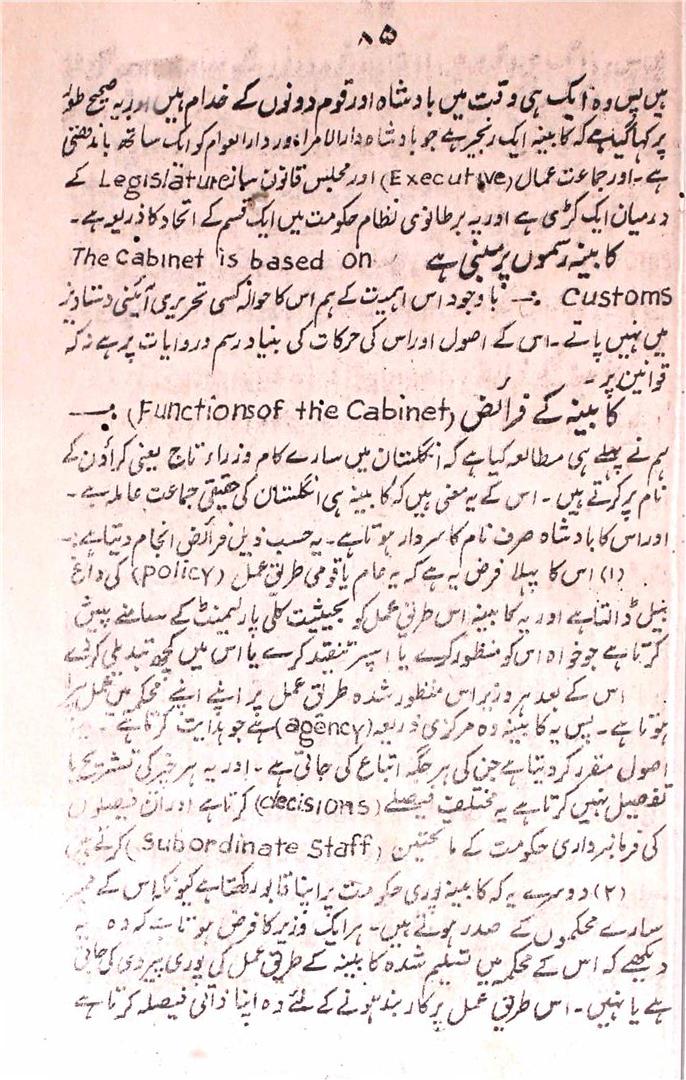 ۸۵
ہیں پس وہ ایک ہی وقت میں بادشاہ اور قوم دونوں کے خدام ہیں اور یہ صحیح طور
پر کہا گیا ہے کہ کابینہ ایک زنجیر ہے جو بادشاہ دارالامراء اور دارالعوام کو ایک ساتھ باندھتی
ہے۔ اور جماعت عمال (Executive) اور مجلس قانون ساز Legislature کے
درمیان ایک کڑی ہے اور یہ برطانوی نظام حکومت میں ایک قسم کے اتحاد کا ذریعہ ہے۔
کابینہ رسموں پر مبنی ہے The Cabinet is based on
Customs :— باوجود اس اہمیت کے ہم اس کا حوالہ کسی تحریری آئینی دستاویز
میں نہیں پاتے۔ اس کے اصول اور اس کی حرکات کی بنیاد رسم و روایات پر ہے نہ کہ
قوانین پر۔
کابینہ کے فرائض (Functions of the Cabinet) :—
ہم نے پہلے ہی مطالعہ کیا ہے کہ انگلستان میں سارے کام وزراء تاج یعنی کراؤن کے
نام پر کرتے ہیں۔ اس کے یہ معنی ہیں کہ کابینہ ہی انگلستان کی حقیقی جماعت عاملہ ہے۔
اور اس کا بادشاہ صرف نام کا سردار ہوتا ہے۔ یہ حسب ذیل فرائض انجام دیتا ہے:۔
(۱) اس کا پہلا فرض یہ ہے کہ یہ عام یا قومی طریق عمل (policy) کی داغ
بیل ڈالتا ہے اور یہ کابینہ اس طریق عمل کو بحیثیت کلی پارلیمنٹ کے سامنے پیش
کرتا ہے جو خواہ اس کو منظور کرے یا اسپر تنقید کرے یا اس میں کچھ تبدیلی کرے
اس کے بعد ہر وزیر اس منظور شدہ طریق عمل پر اپنے اپنے محکمہ میں عمل
ہوتا ہے۔ پس یہ کابینہ وہ مرکزی ذریعہ (agency) ہے جو ہدایت کرتا ہے۔
اصول مقرر کر دیتا ہے جن کی ہر جگہ اتباع کی جاتی ہے۔ اور یہ ہر چیز کی تشریح یا
تفصیل نہیں کرتا ہے یہ مختلف فیصلے (decisions) کرتا ہے اور ان فیصلوں
کی فرمانبرداری حکومت کے ماتحتین (Subordinate Staff) کرتے ہیں
(۲) دوسرے یہ کہ کابینہ پوری حکومت پر اپنا قابو رکھتا ہے کیونکہ اس کے ممبر
سارے محکموں کے صدر ہوتے ہیں۔ ہر ایک وزیر کا فرض ہوتا ہے کہ وہ یہ
دیکھے کہ اس کے محکمہ میں تسلیم شدہ کابینہ کے طریق عمل کی پوری پیروی کی جاتی
ہے یا نہیں۔ اس طریق عمل پر کاربند ہونے کے لئے وہ اپنا ذاتی فیصلہ کرتا ہے